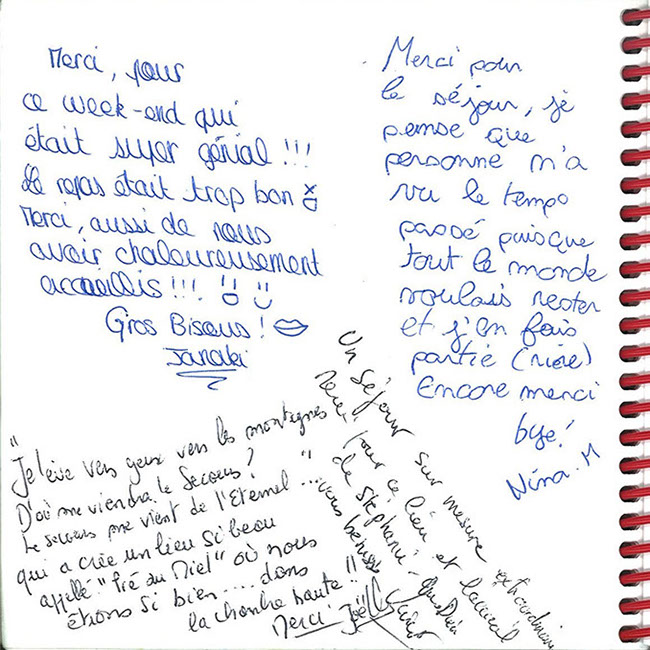 Merci, pour
ce week-end qui
était super génial !!!
Le repas était trop bon
Merci, aussi de nous
avoir chaleureusement
accueillis !!!
Gros Bisous !
Janaki
Merci pour
le séjour, je
pense que
personne n'a
vu le temps
passé puisque
tout le monde
voulais rester
et j'en fais
partie (rire)
Encore merci
bye!
Nina. M
"Je lève vers yeux vers les montagnes
D'où me viendra le Secours?
Le secours me vient de l'Eternel ...
qui a crée un lieu si beau
appellé "Pré du Miel" où nous
étions si bien.... dans
la chambre haute" !!
Merci Joël
Un séjour sur mesure extraordinaire
Merci pour ce lieu et l'accueil
de Stephanie - Que Dieu
vous bénisse